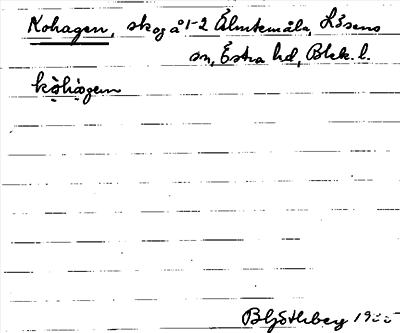 Kohagen, skog å 1-2 Almtemåla, Lösens
sn, Östra hd, Blek. l.
kòhàgen
B Götlberg 19